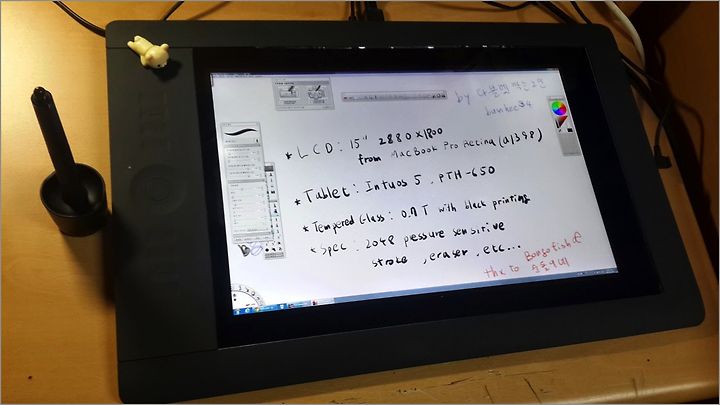 by
bambee34
* LCD : 15" 2880x1800
from MacBook Pro Retina (a1398)
* Tablet : Intuos 5 . PTH-650
* Tempered Glass : 0.7T with black printing
* Spec : 2048 pressure sensitive
stroke , eraser , etc...
thx to Bongofish &